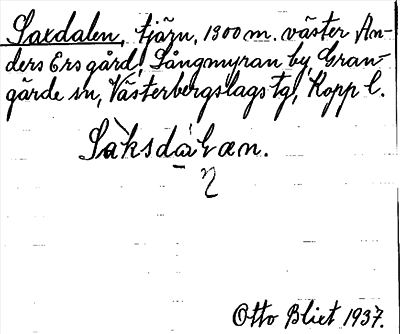 Saxdalen, tjärn, 1300 m. väster An-
ders Ers gård, Sångmyran by, Gran-
gärde sn, Västerbergslags tg, Kopp l.
Sàksdáɫæn.
Otto Blixt 1937.